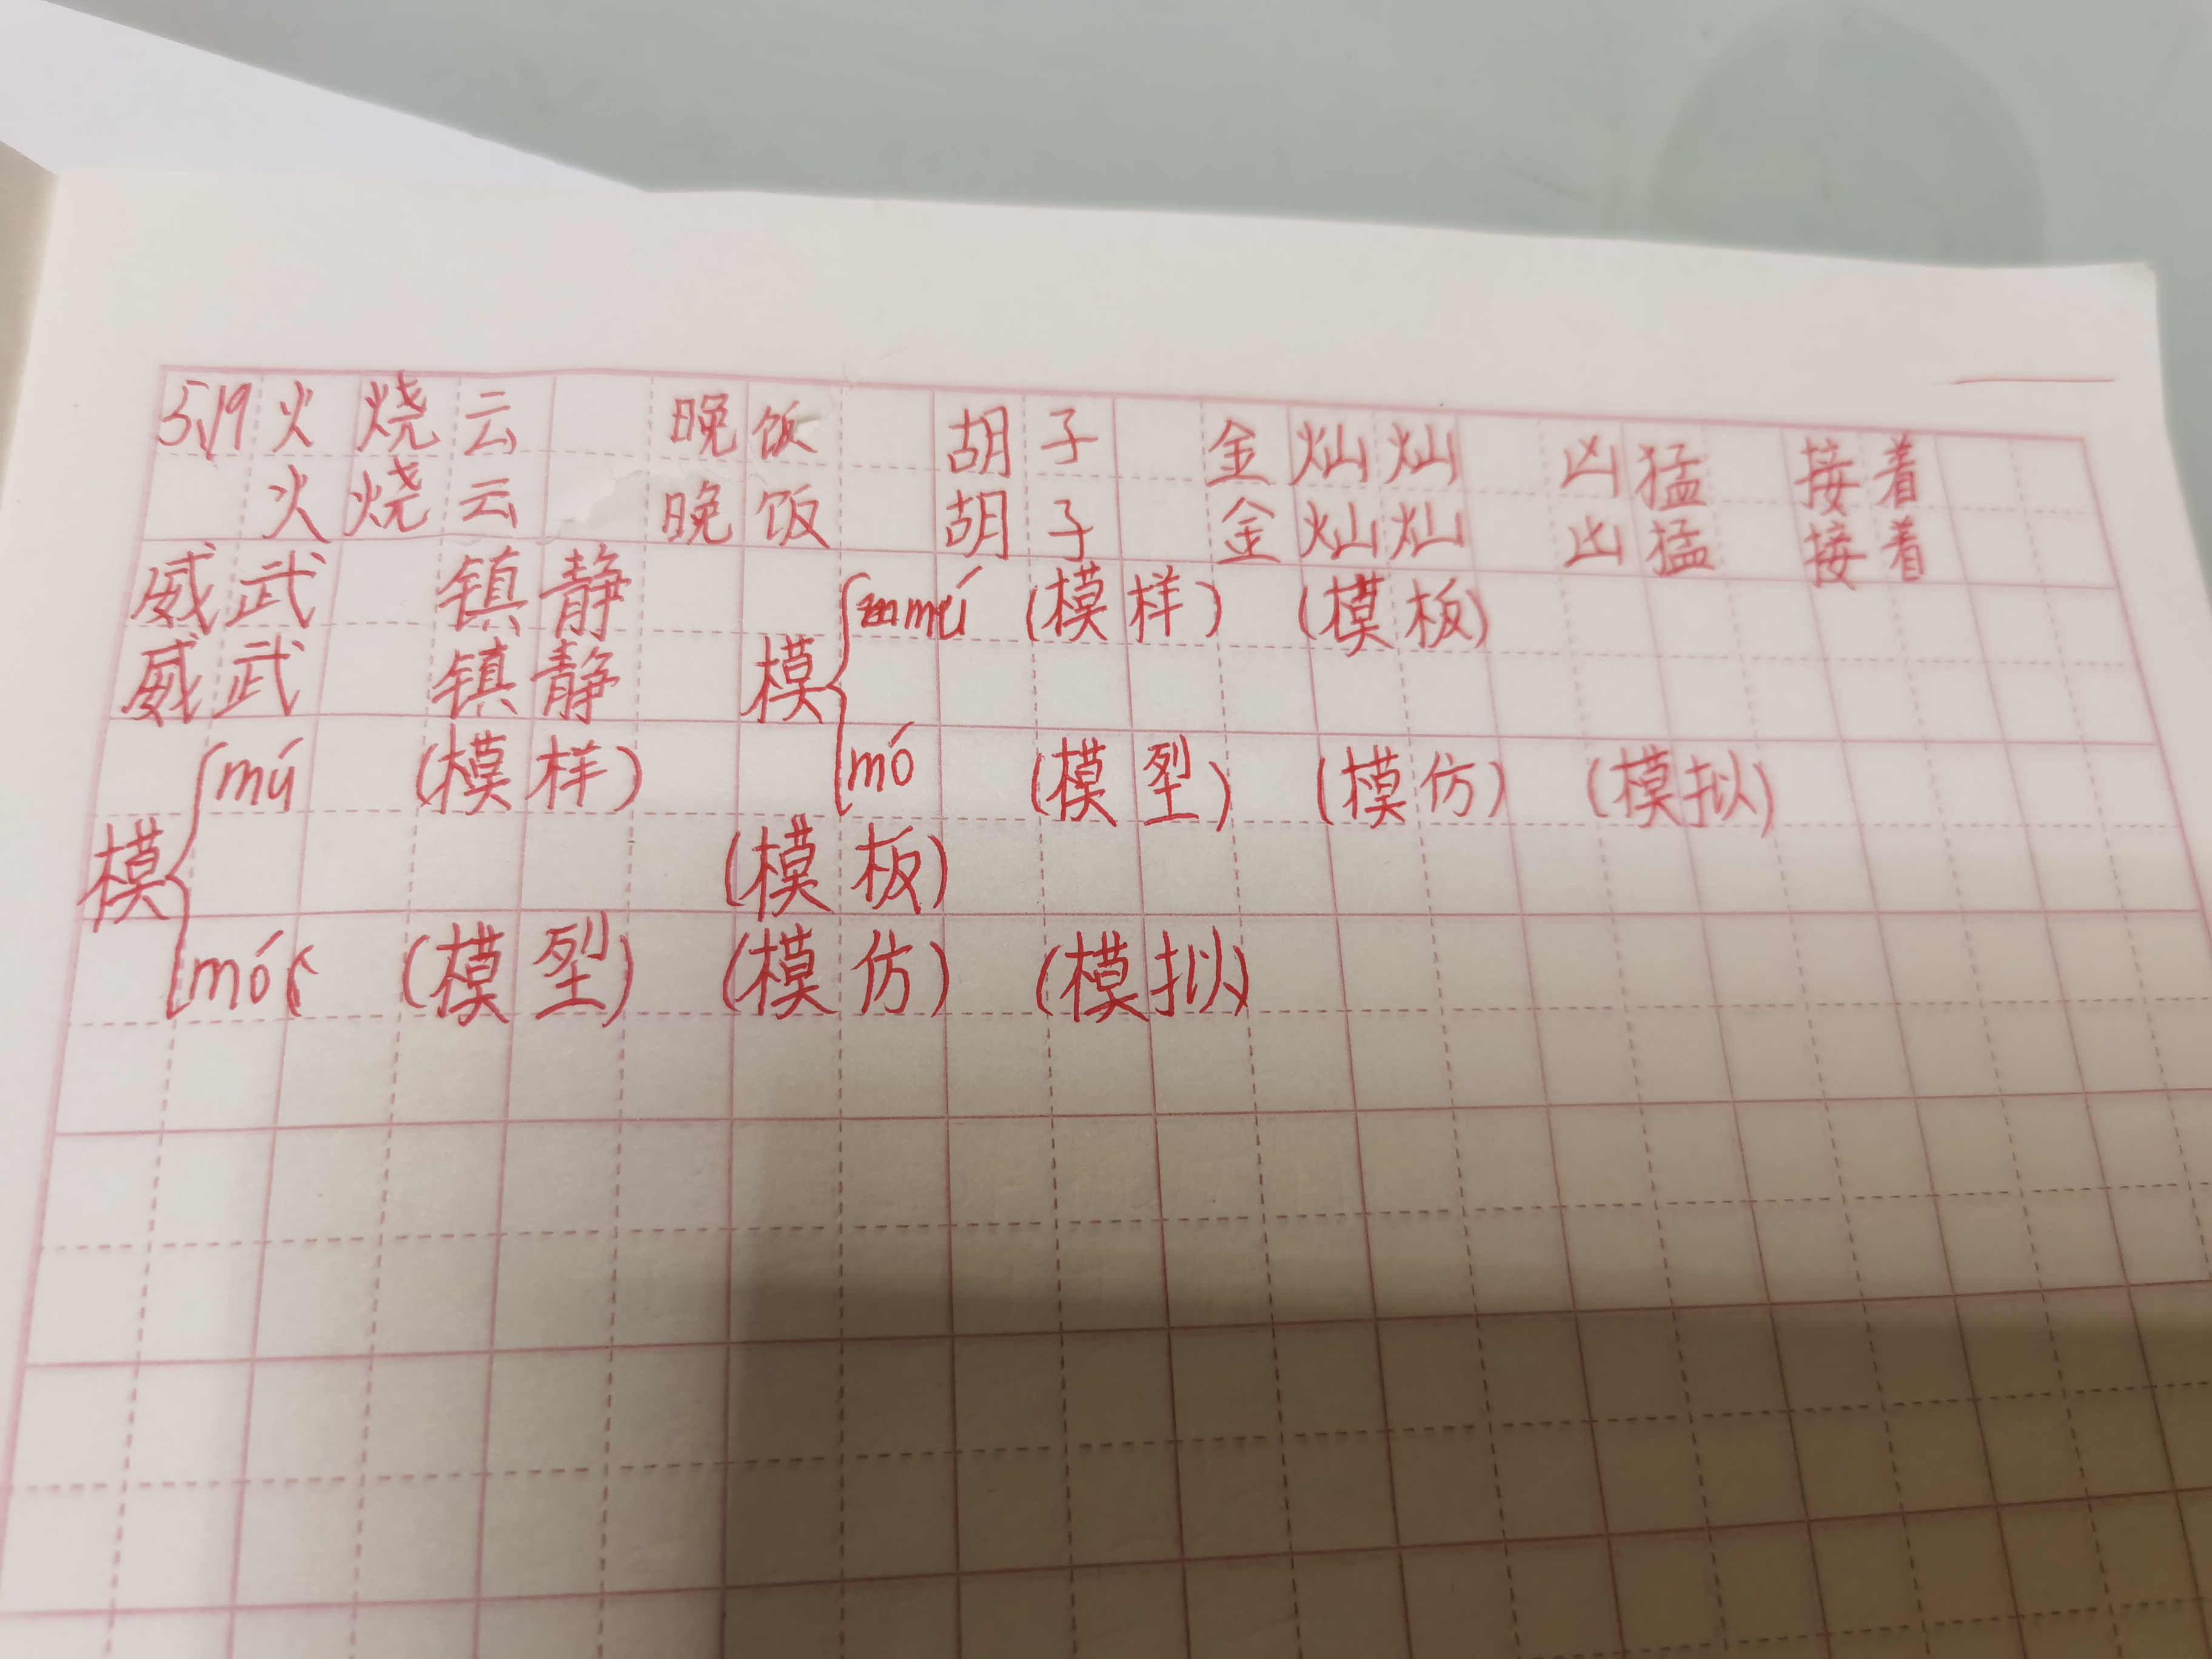 5.19 火烧云 晚饭 胡子 金灿灿 凶猛 接着
火烧云 晚饭 胡子 金灿灿 凶猛 接着
威武 镇静 mú (模样) (模板)
威武 镇静 模
mú (模样) mó (模型) (模仿) (模拟)
模 (模板)
mó (模型) (模仿) (模拟)